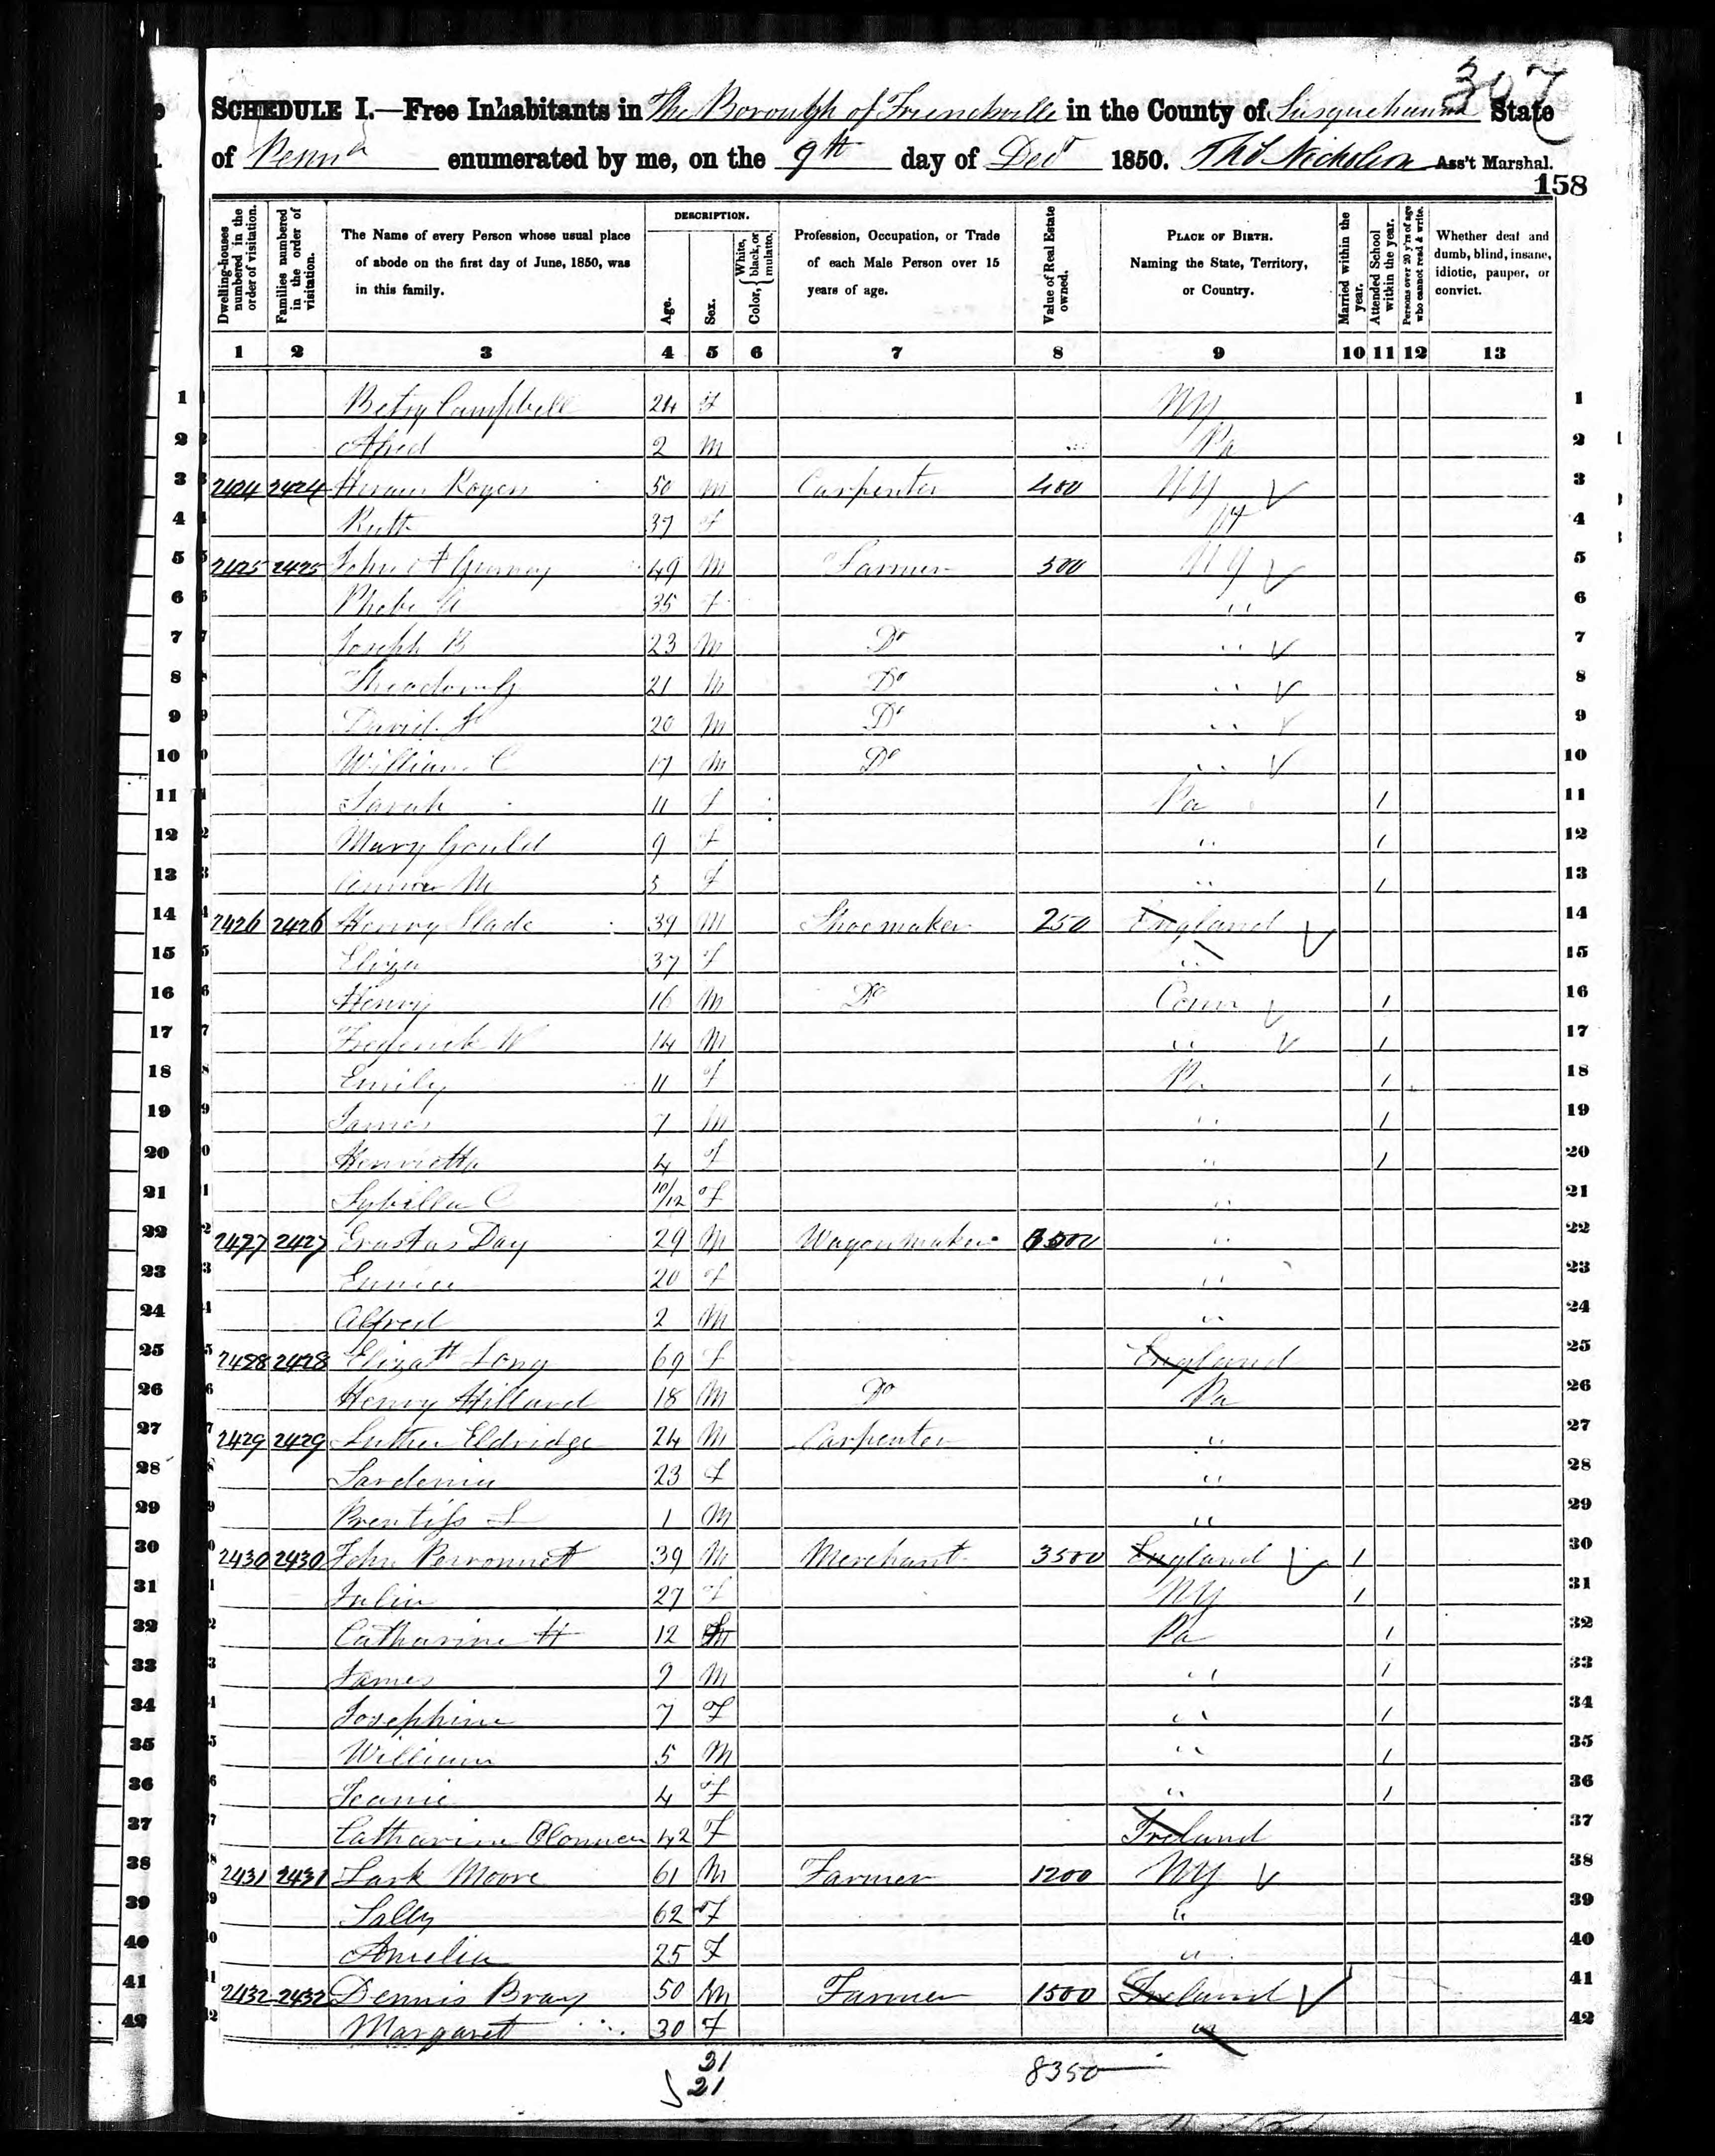 307
SCHEDULE I.—Free Inhabitants in The Borough of Friendsville in the County of Susquehanna State
of Penna enumerated by me, on the 9th day of Decr 1850. Thos Nicholson Ass't Marshal.
158
Dwelling-houses numbered in the order of visitation. Families numbered in the order of visitation. The Name of every Person whose usual place of abode on the first day of June, 1850, was in this family. DESCRIPTION. Age. Sex. Color, { White, black, or mulatto. Profession, Occupation, or Trade of each Male Person over 15 years of age. Value of Real Estate owned. PLACE OF BIRTH. Naming the State, Territory, or Country. Married within the year. Attended School within the year. Persons over 20 y'rs of age who cannot read & write. Whether deaf and dumb, blind, insane, idiotic, pauper, or convict.
1 2 3 4 5 6 7 8 9 10 11 12 13
1 Betsy Campbell 24 F NY 1
2 2 M Pa 2
3 2424 2424 Hiram Rogers 50 M Carpenter 400 NY 3
4 Ruth 37 F 4
5 2425 2425 John 49 M Farmer 500 NY 5
6 Phebe A 35 F " 6
7 Joseph B 23 M Do " 7
8 Theodore G 21 M Do " 8
9 David 20 M Do " 9
10 William C 17 M Do " 10
11 Sarah 11 F Pa 1 11
12 Mary Gould 9 F " 1 12
13 M 5 F " 1 13
14 2426 2426 Henry Slade 39 M Shoemaker 250 England 14
15 Eliza 37 F " 15
16 Henry 16 M Do Conn 1 16
17 Frederick W 14 M " 1 17
18 Emily 11 F Pa 1 18
19 James 7 M " 1 19
20 Henrietta 4 F " 1 20
21 Sybilla C 10/12 F " 21
22 2427 2427 Erastus Day 29 M Wagonmaker " 22
23 Eunice 20 F " 23
24 Alfred 2 M " 24
25 2428 2428 Elizath Long 69 F England 25
26 Henry Hilland 18 M Do Pa 26
27 2429 2429 Luther Eldridge 24 M Carpenter " 27
28 Sardenia 23 F " 28
29 Prentiss L 1 M " 29
30 2430 2430 John Perronnet 39 M Merchant 3500 England 1 30
31 Julia 27 F NY 1 31
32 Catharine H 12 F Pa 1 32
33 James 9 M " 1 33
34 Josephine 7 F " 1 34
35 William 5 M " 1 35
36 Jeanie 4 F " 1 36
37 Catharine 42 F Ireland 37
38 2431 2431 Lark Moore 61 M Farmer 1200 NY 38
39 Sally 62 F " 39
40 Amelia 25 F " 40
41 2432 2432 Dennis Bray 50 M Farmer 1500 Ireland 41
42 Margaret 30 F " 42
21
21
8350